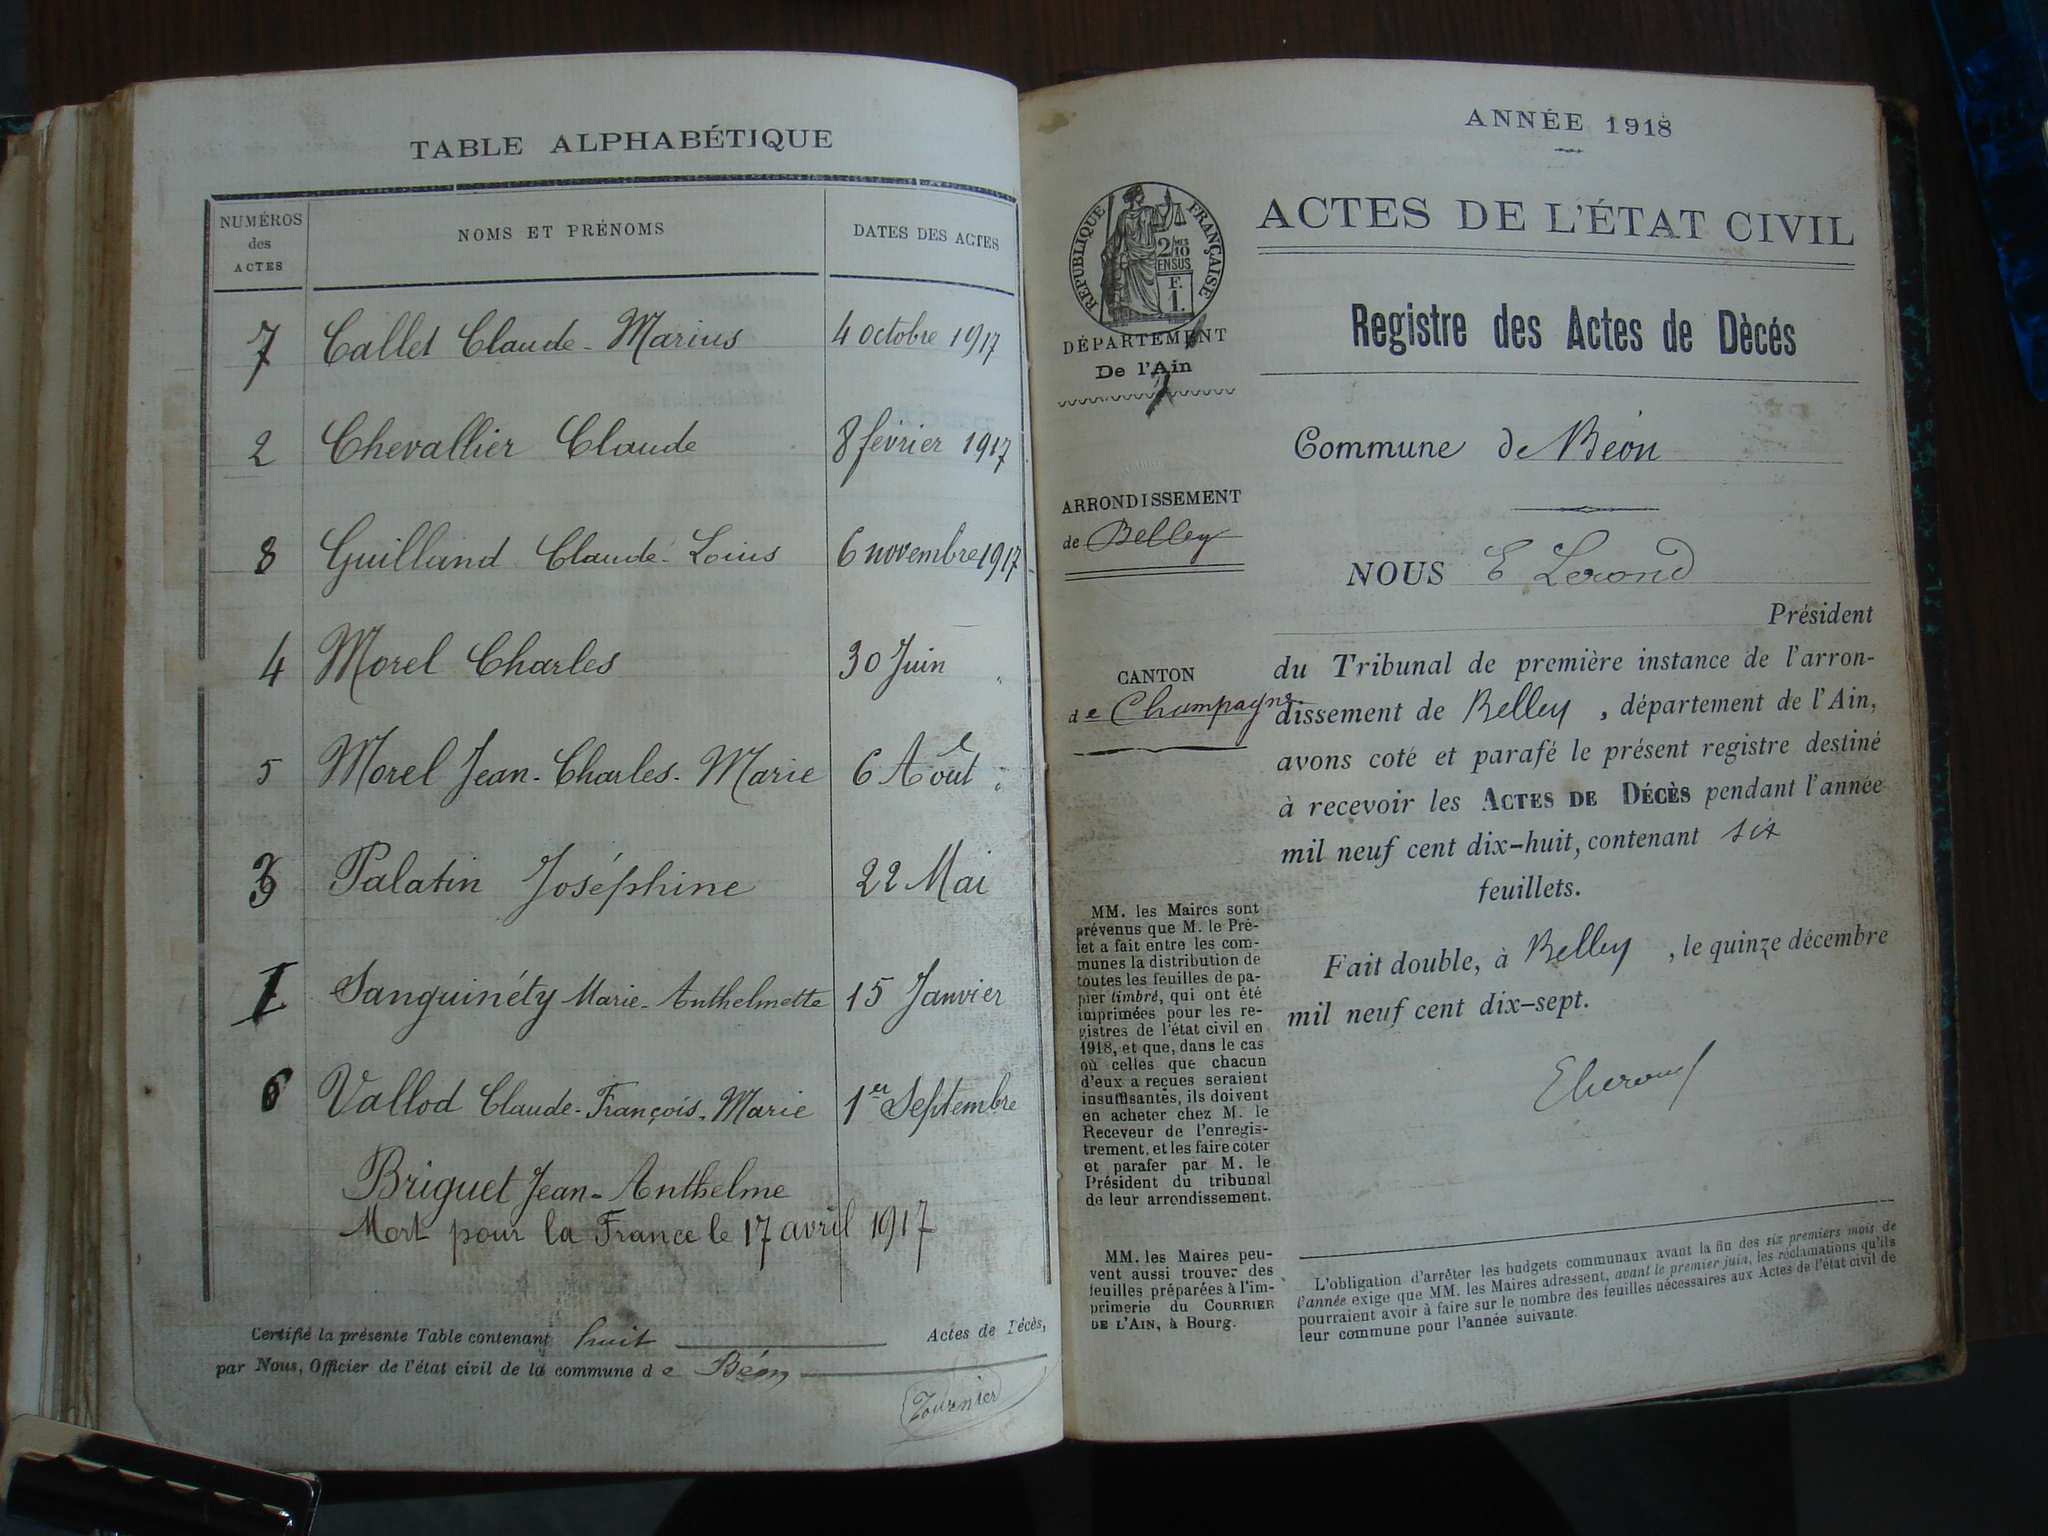 TABLE ALPHABÉTIQUE
NUMÉROS des ACTES NOMS ET PRÉNOMS DATES DES ACTES
7 Callet Claude-Marius 4 octobre 1917
2 Chevallier Claude 8 février 1917
8 Guilland Claude-Loius 6 novembre 1917
4 Morel Charles 30 Juin "
5 Morel Jean-Charles-Marie 6 Août "
3 Palatin Joséphine 22 Mai
1 Sanguinéty Marie-Anthelmette 15 Janvier
6 Vallod Claude-François-Marie 1er Septembre
Briguet Jean-Anthelme
Mort pour la France le 17 avril 1917
Certifié la présente Table contenant huit Actes de Décès,
par Nous, Officier de l'état civil de la commune de Béon
Tournier
ANNÉE 1918
ACTES DE L'ÉTAT CIVIL
RÉPUBLIQUE FRANÇAISE
2/10 MES
EN SUS
F.
1.
DÉPARTEMENT
De l'Ain
Registre des Actes de Dècés
Commune de Béon
ARRONDISSEMENT
de Belley
NOUS E Lerond
Président
CANTON
de Champagne
du Tribunal de première instance de l'arron-
dissement de Belley, département de l'Ain,
avons coté et parafé le présent registre destiné
à recevoir les ACTES DE DÉCÈS pendant l'année
mil neuf cent dix-huit, contenant six
feuillets.
Fait double, à Belley, le quinze décembre
mil neuf cent dix-sept.
MM. les Maires sont
prévenus que M. le Pré-
fet a fait entre les com-
munes la distribution de
toutes les feuilles de pa-
pier timbré, qui ont été
imprimées pour les re-
gistres de l'état civil en
1918, et que, dans le cas
où celles que chacun
d'eux a reçues seraient
insuffisantes, ils doivent
en acheter chez M. le
Receveur de l'enregis-
trement, et les faire coter
et parafer par M. le
Président du tribunal
de leur arrondissement.
MM. les Maires peu-
vent aussi trouver des
feuilles préparées à l'im-
primerie du COURRIER
DE L'AIN, à Bourg.
L'obligation d'arrêter les budgets communaux avant la fin des six premiers mois de
l'année exige que MM. les Maires adressent, avant le premier juin, les réclamations qu'ils
pourraient avoir à faire sur le nombre des feuilles nécessaires aux Actes de l'état civil de
leur commune pour l'année suivante.